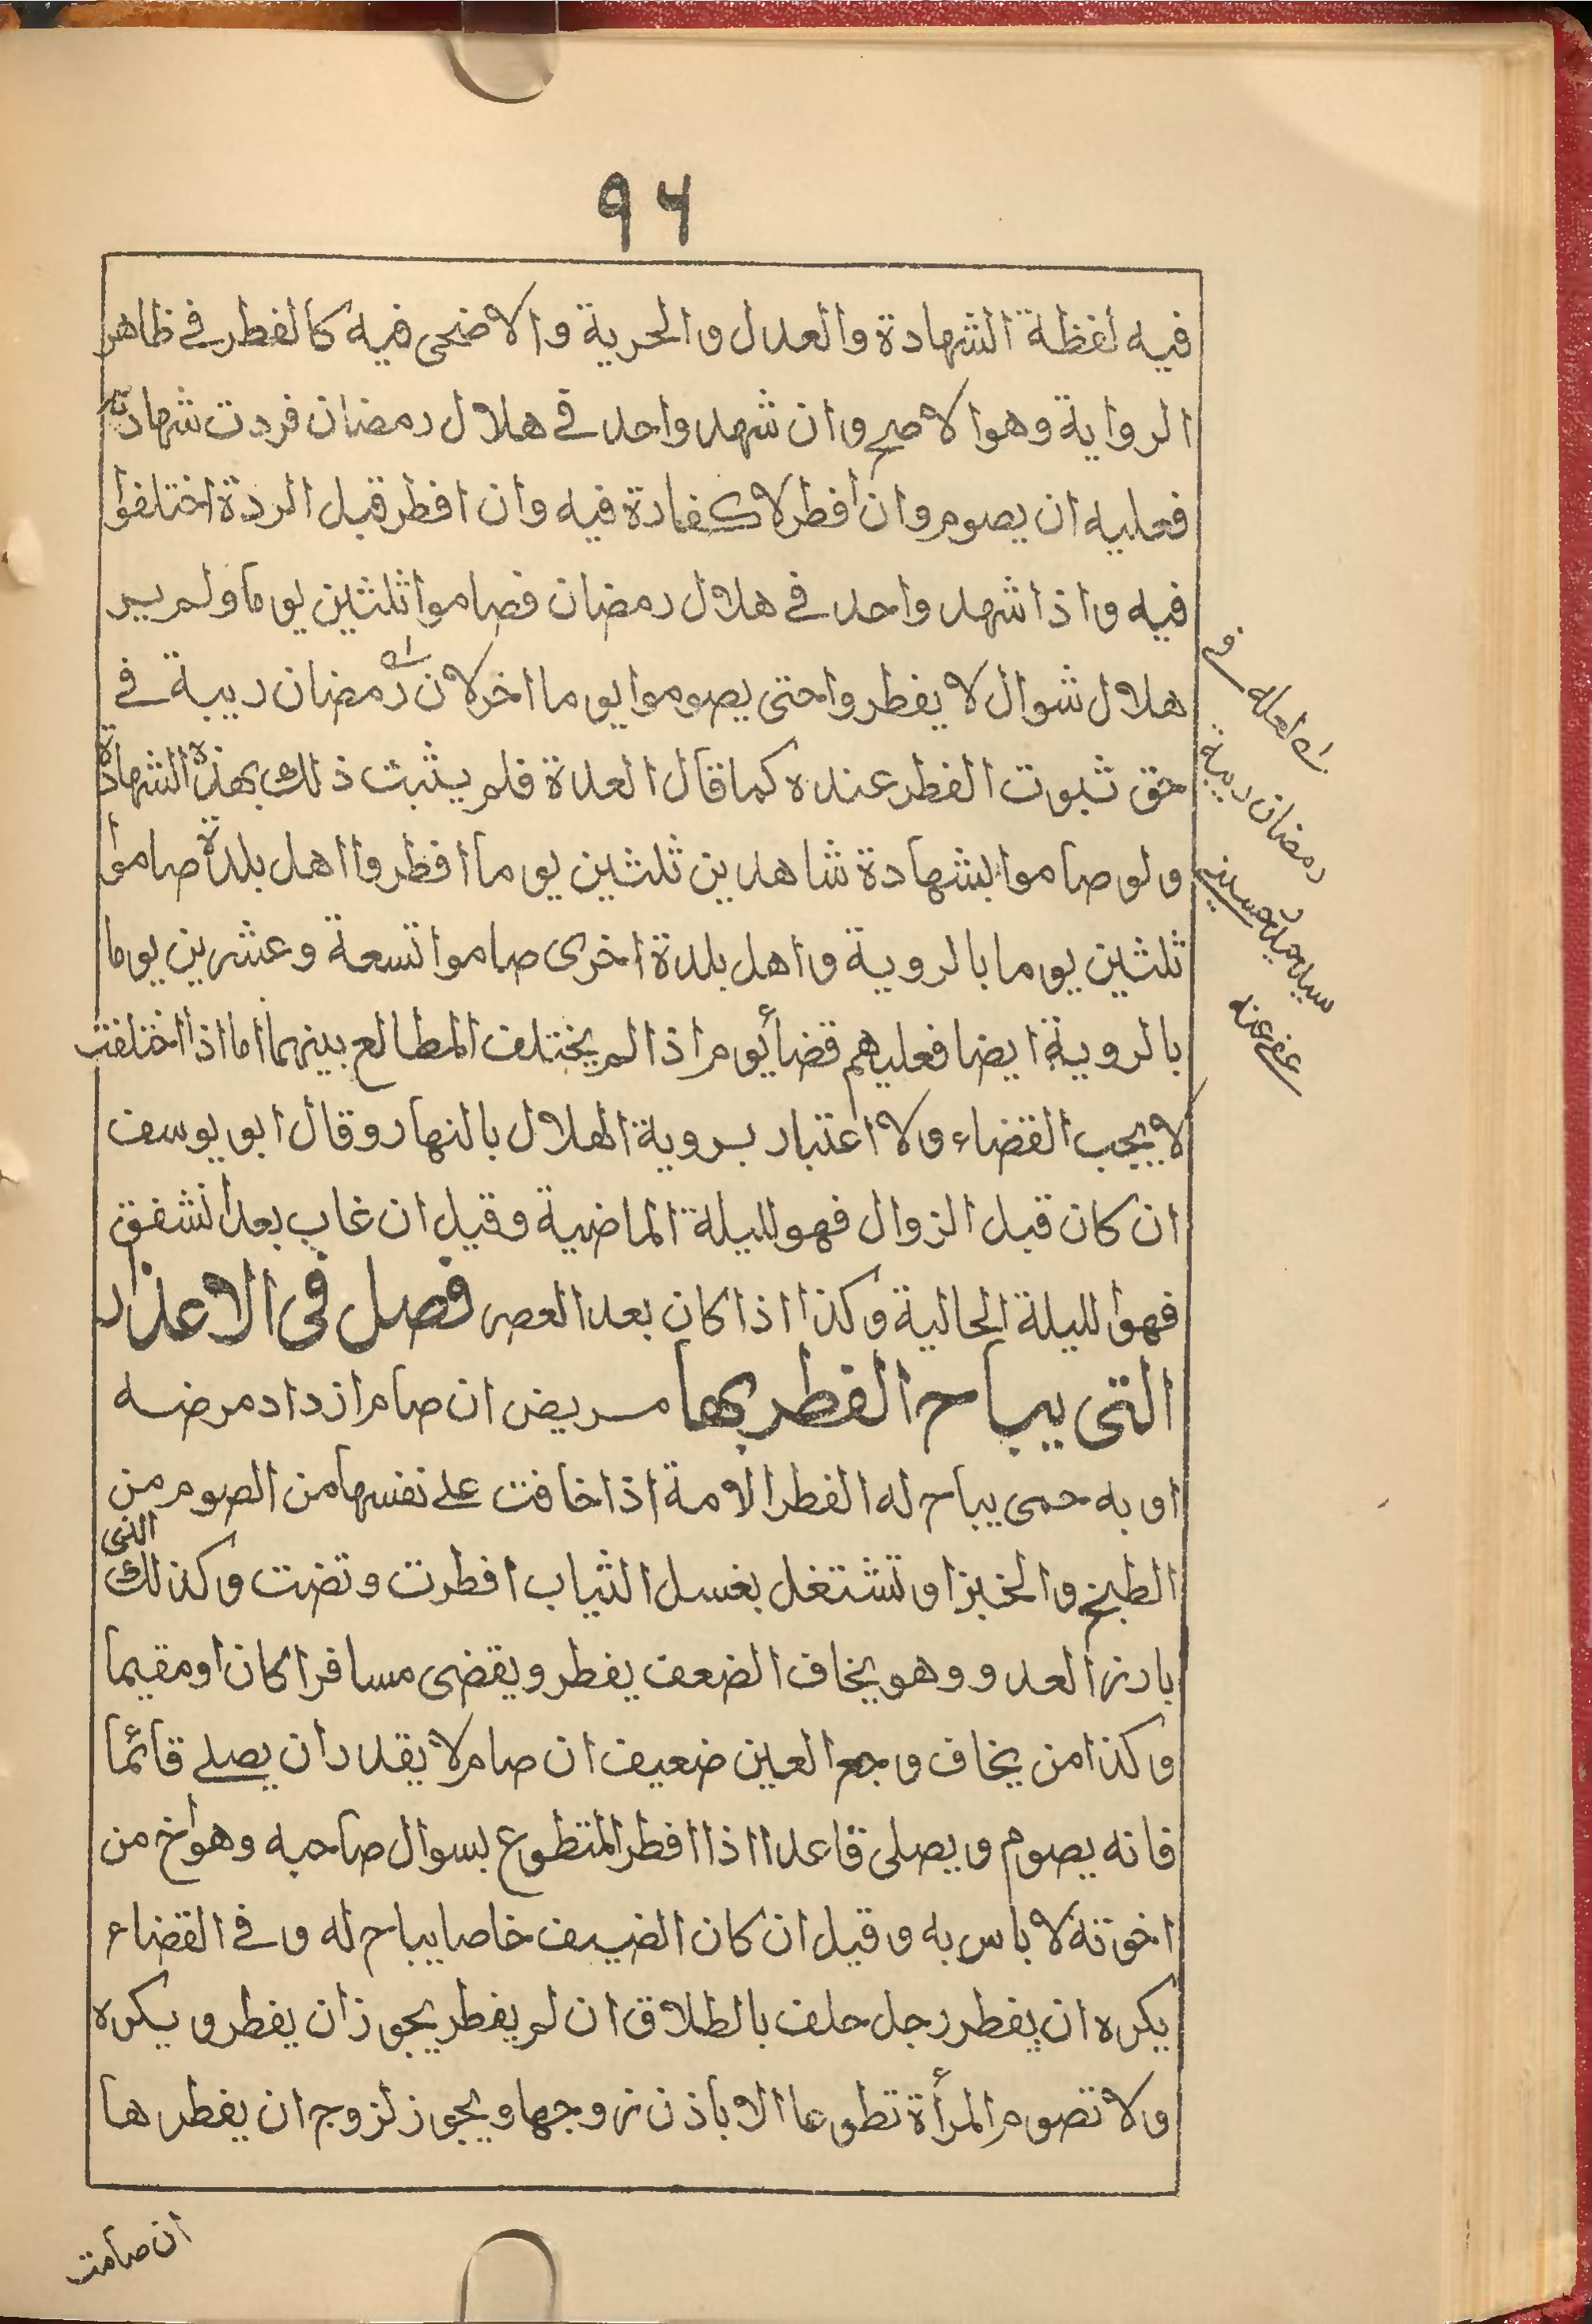 ۹۴
فيه لفظة الشهادة والعدل والحرية والاضحى فيه كالفطر في ظاهر
الرواية وهو الاصح وان شهد واحد في هلال رمضان فردت شهادته
فعليه ان يصوم وان افطر لا كفارة فيه وان افطر قبل الردة اختلفوا
فيه واذا شهد واحد في هلال رمضان فصاموا ثلثين يوما ولم ير
هلال شوال لا يفطروا حتى يصوموا يوما اخر لان رمضان ريبة في
حق ثبوت الفطر عنده كما قال العدة فلم يثبت ذلك بهذه الشهادة
ولو صاموا بشهادة شاهدين ثلثين يوما افطروا اهل بلدة صاموا
ثلثين يوما بالروية واهل بلدة اخرى صاموا تسعة وعشرين يوما
بالروية ايضا فعليهم قضأ يوم اذا لم يختلف المطالع بينهما اما اذا اختلفت
لا يجب القضاء ولا اعتبار بروية الهلال بالنهار وقال ابو يوسف
ان كان قبل الزوال فهو لليلة الماضية وقيل ان غاب بعد الشفق
فهو لليلة الحالية وكذا اذا كان بعد العصر فصل في الاعذار
التى يباح الفطر بها مريض ان صام ازداد مرضه
او به حمى يباح له الفطر الامة اذا خافت على نفسها من الصوم من
الطبخ والخبز او تشتغل بغسل الثياب افطرت وتضت وكذلك الذى
بارز العدو وهو يخاف الضعف يفطر ويقضى مسافرا كان او مقيما
وكذا من يخاف وجع العين ضعيف ان صام لا يقدر ان يصلى قائما
فانه يصوم ويصلى قاعدا اذا افطر المتطوع بسوال صاحبه وهو اخ من
اخوته لا باس به وقيل ان كان الضيف خاصا يباح له وفي القضاء
يكره ان يفطر رجل حلف بالطلاق ان لم يفطر يجوز ان يفطر ويكره
ولا تصوم المرأة تطوعا الا باذن زوجها ويجوز لزوج ان يفطرها
رمضان ريبة
عفى عنه
ان صامت